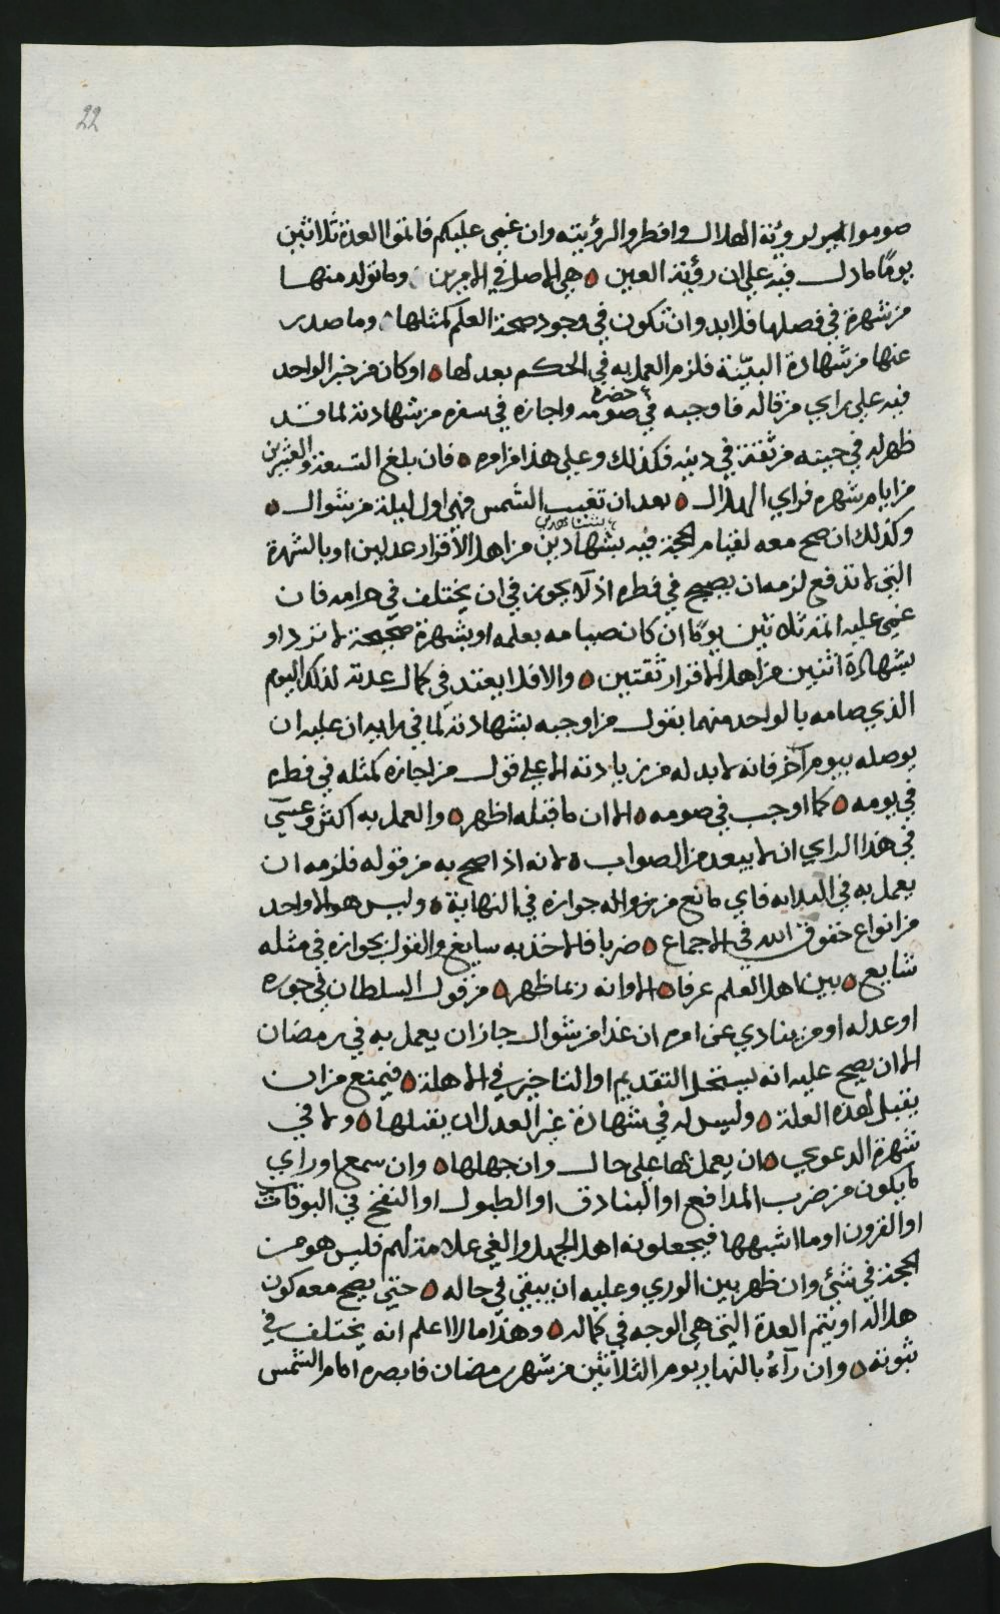 22
صوموا لرؤية الهلال وافطروا لرؤيته وان غمي عليكم فاتموا العدة ثلاثين
يومًا ما دل فيه علي ان رؤية العين هي الاصل في الامرين وما تولد منها
من شهرة في فصلها فلا بد وان تكون في وجود صحة العلم كمثلها وما صدر
عنها من شهادة البيّنة فلزم العمل به في الحكم بعدلها او كان من خبر الواحد
فيه علي راي من قاله فاوجبه في صومه حضره واجازه في سفره من شهادته لما قد
ظهر له في حينه من ثقته في دينه فكذلك وعلي هذا من امره فان بلغ التسعة والعشرين
من ايام شهره فراي الهلال بعد ان تغيب الشمس فهي اول ليلة من شوال
وكذلك ان صح معه لقيام الحجة فيه بشهادين بشاهدين من اهل الاقرار عدلين او بالشهرة
التي لا تدفع لزمه ان يصبح في فطره اذ لا يجوز في ان يختلف في حرامه فان
غمي عليه اتمه ثلاثين يومًا ان كان صيامه بعلمه او بشهرة صحيحة لا ترد او
بشهادة اثنين من اهل الاقرار ثقتين والا فلا يعتد في كمال عدته لذلك اليوم
الذي صامه بالواحد منهما بقول من اوجبه بشهادته لما في رايه ان عليه ان
يوصله بيوم آخر فانه لا بد له من زيادته الا علي قول من اجازه كمثله في فطره
في يومه كما اوجب في صومه الا ان ما قبله اظهر والعمل به اكثر وعسي
في هذا الراي ان لا يبعد من الصواب لانه اذا صح به من قوله فلزمه ان
يعمل به في البداية فاي مانع من زواله جوازه في النهاية وليس هو الا واحد
من انواع حقوق الله في الاجماع ضربا فالاخذ به سايغ والقول بجوازه في مثله
شايع بين اهل العلم عرفا الا وانه ربما ظهر من قول السلطان في جوره
او عدله او من ينادي عن امره ان غدا من شوال جاز ان يعمل به في رمضان
الا ان يصح عليه انه يستحل التقديم او التاخير في الاهلة فيمنع من ان
يقبل لهذه العلة وليس له في شهادة غير العدل ان يقبلها ولا في
شهرة الدعوي ان يعمل بها علي حال وان جهلها وان سمع او راي
ما يكون من ضرب المدافع او البنادق او الطبول او النفخ في البوقات
او القرون او ما اشبهها فيجعلونه اهل الجهل والغي علامة لهم فليس هو من
الحجة في شيء وان ظهر بين الوري وعليه ان يبقي في حاله حتي يصح معه كون
هلاله او يتم العدة التي هي الوجه في كماله وهذا ما لا اعلم انه يختلف في
ثبوته وان رآه بالنهار يوم الثلاثين من شهر رمضان فابصره امام الشمس